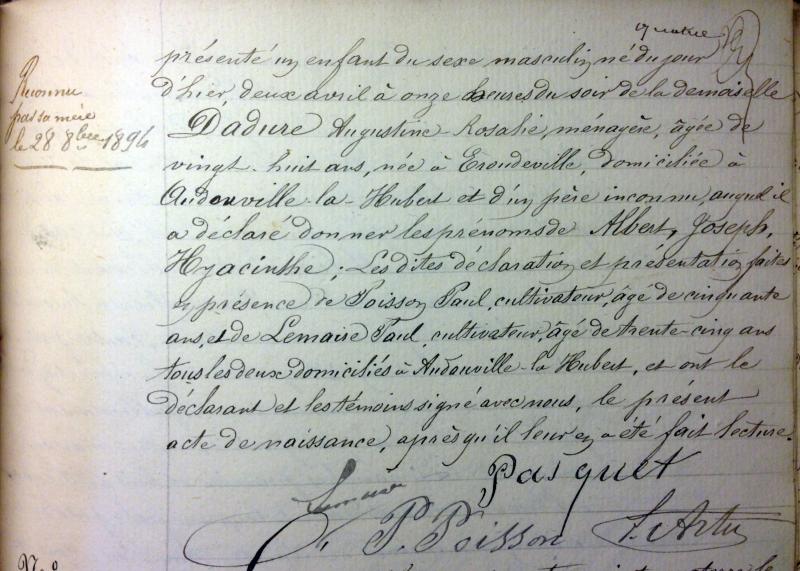 quatre
présenté un enfant du sexe masculin né du jour
d'hier, deux avril à onze heures du soir de la demoiselle
Dadure Augustine-Rosalie, ménagère, âgée de
vingt-huit ans, née à Eroudeville, domiciliée à
Audouville-la-Hubert et d'un père inconnu, auquel il
a déclaré donner les prénoms de Albert, Joseph,
Hyacinthe; Les dites déclaration et présentation faites
en présence de Poisson Paul, cultivateur, âgé de cinquante
ans, et de Lemaise Paul, cultivateur, âgé de trente-cinq ans
tous les deux domiciliés à Audouville-la Hubert, et ont le
déclarant et les témoins signé avec nous, le présent
acte de naissance, après qu'il leur en a été fait lecture.
Reconnu
par sa mère
le 28 8bre 1894
Pasquet
P. Poisson
N°